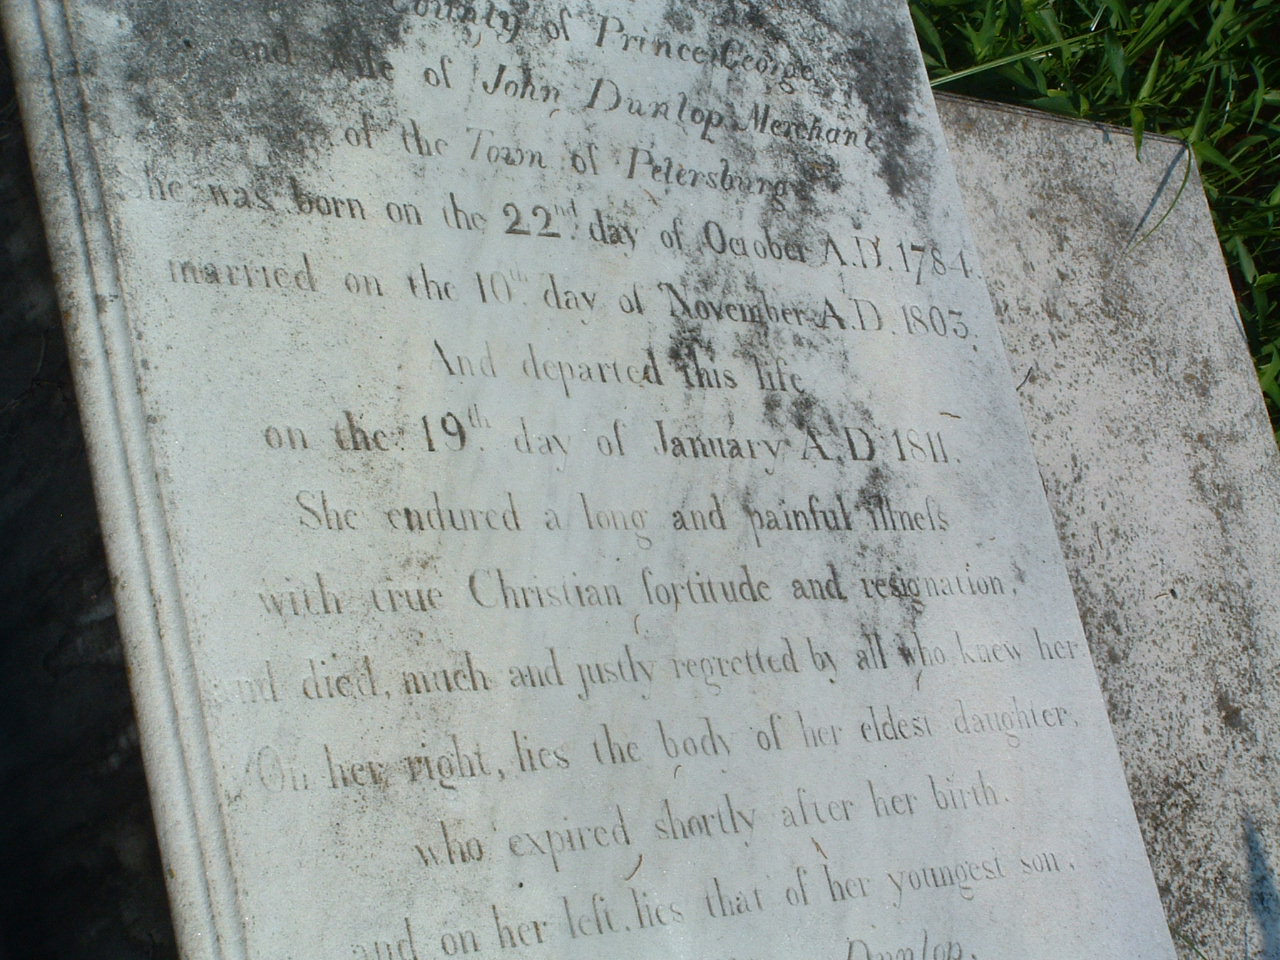 County of Prince George
and wife of John Dunlop Merchant
of the Town of Petersburg
She was born on the 22nd. day of October A.D. 1784.
married on the 10th. day of November A.D. 1803.
And departed this life
on the 19th. day of January A.D 1811.
She endured a long and painful illneſs
with true Christian fortitude and resignation,
and died, much and justly regretted by all who knew her
On her right, lies the body of her eldest daughter,
who expired shortly after her birth.
and on her left, lies that of her youngest son,
Dunlop,